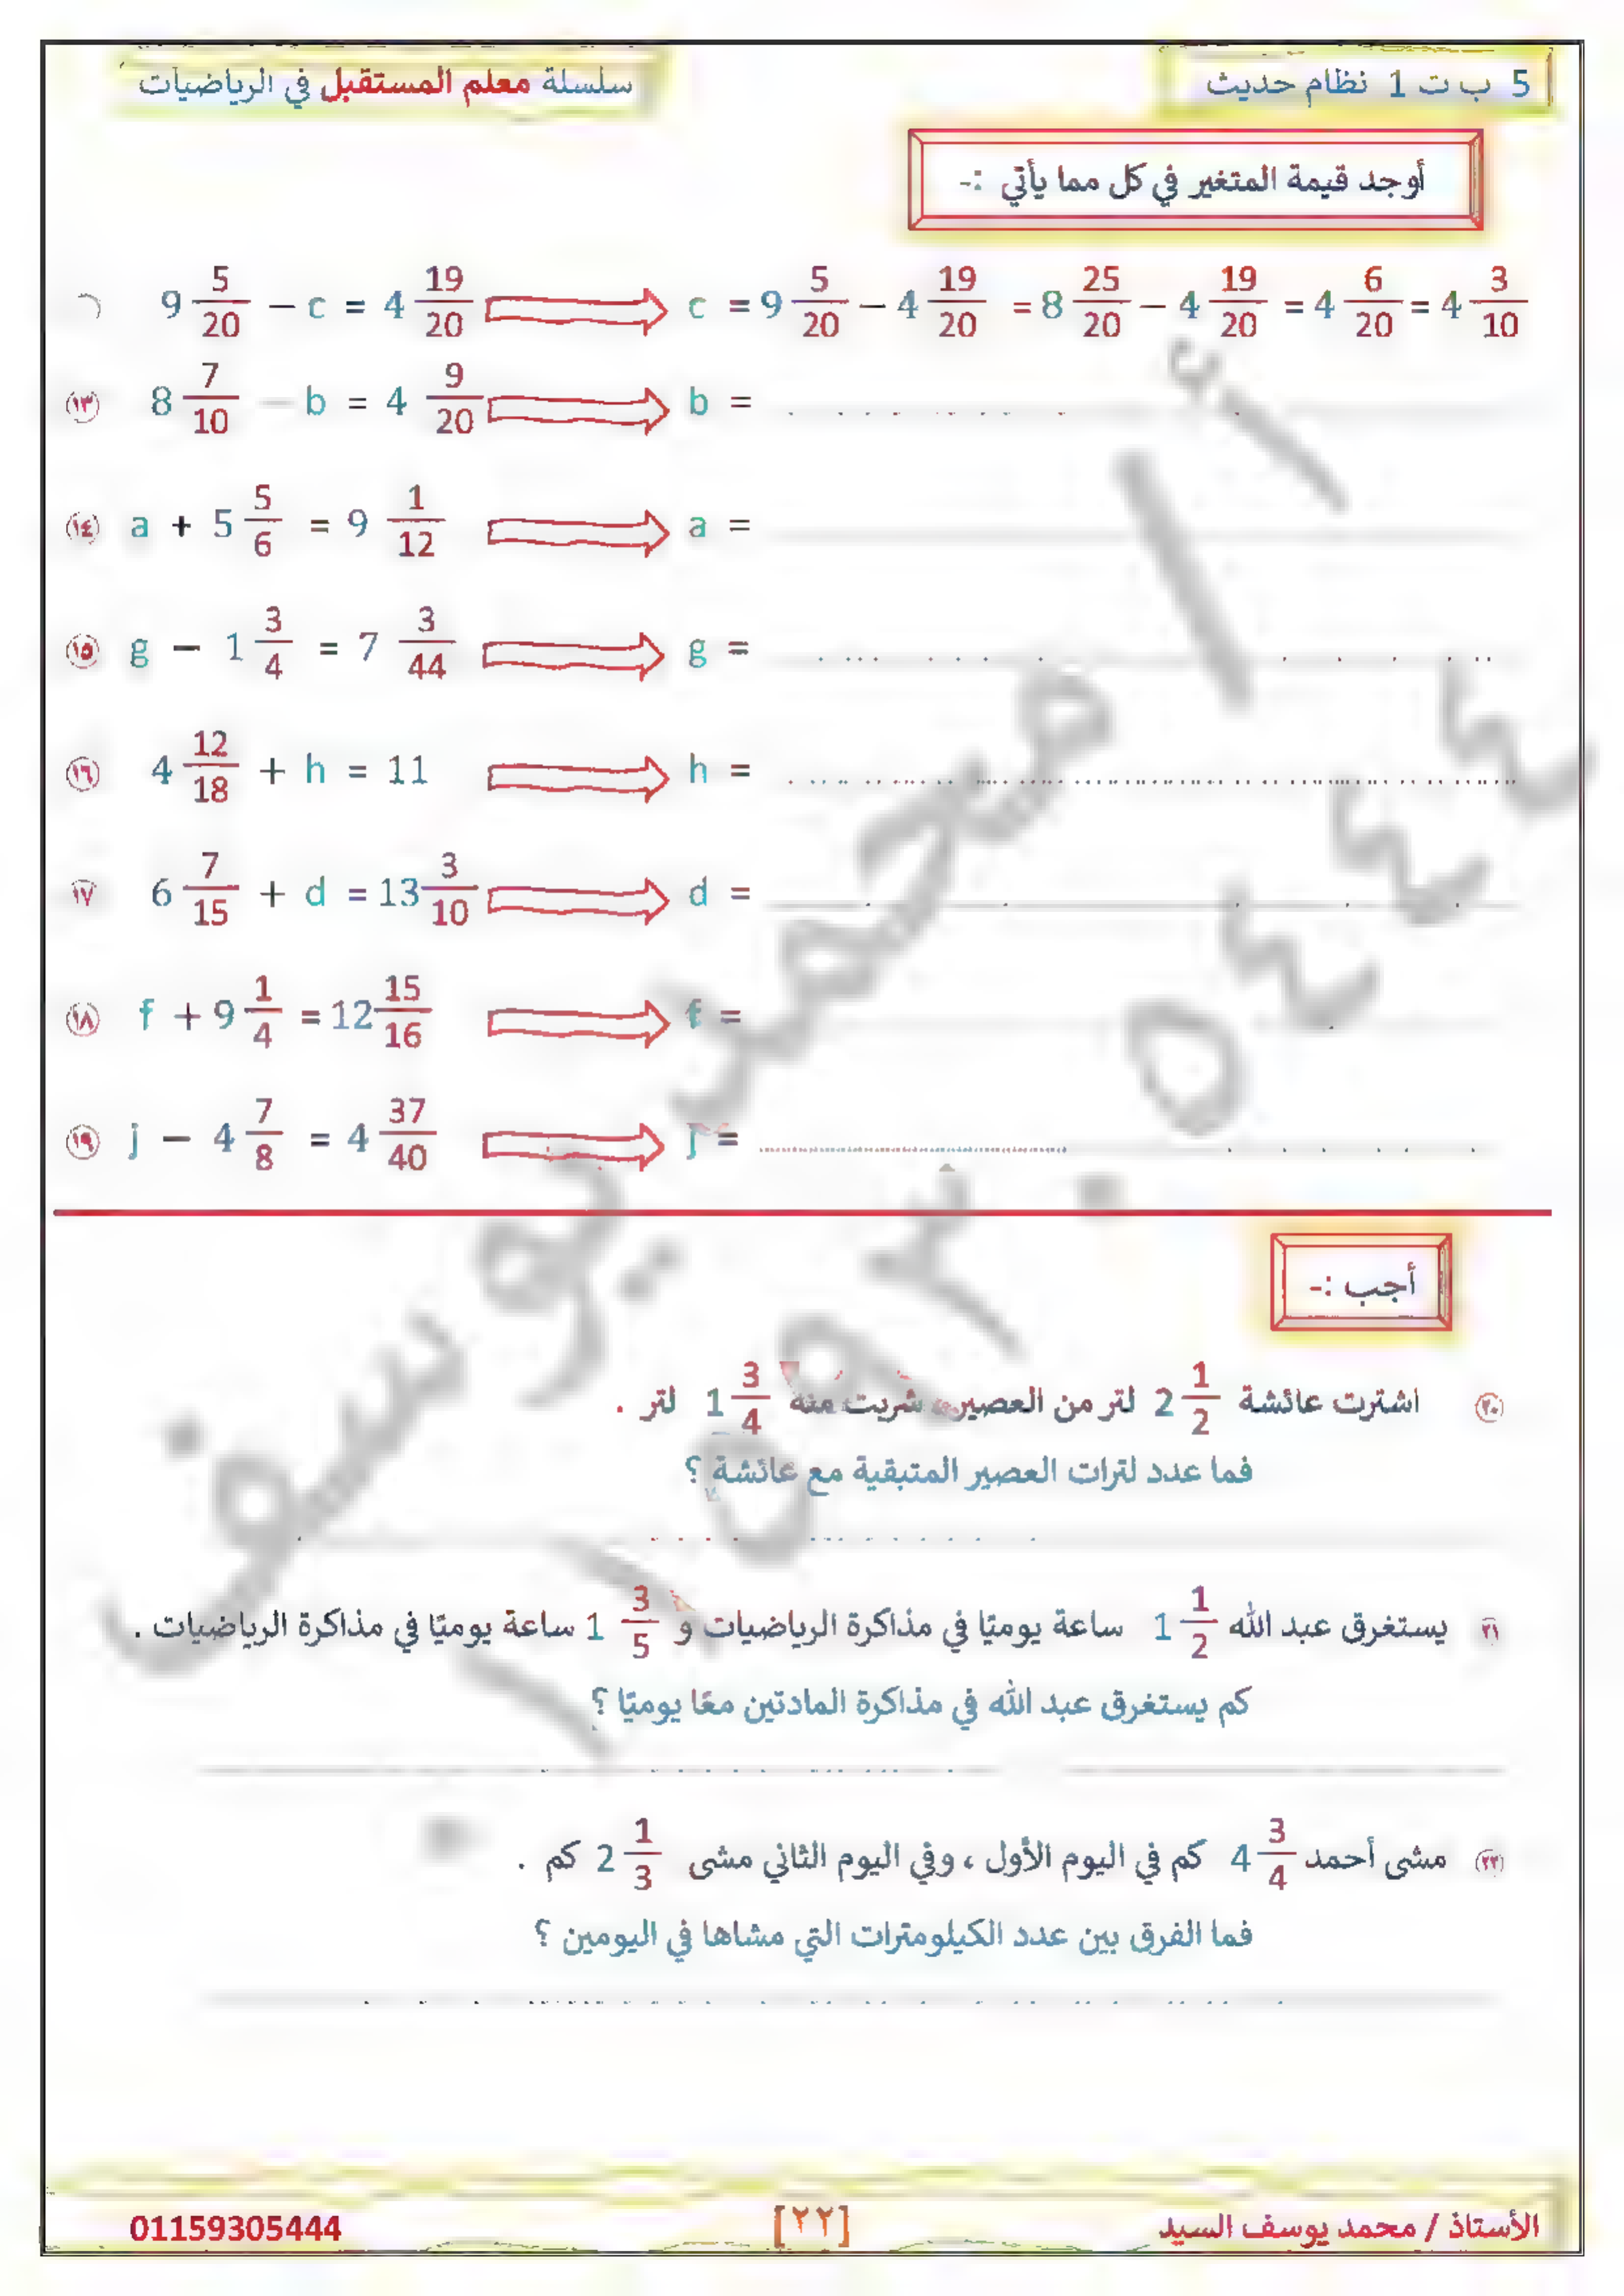 5 ب ت 1 نظام حديث
سلسلة معلم المستقبل في الرياضيات
أوجد قيمة المتغير في كل مما يأتي :-
9 5/20 − c = 4 19/20 c = 9 5/20 − 4 19/20 = 8 25/20 − 4 19/20 = 4 6/20 = 4 3/10
١٣ 8 7/10 − b = 4 9/20 b =
١٤ a + 5 5/6 = 9 1/12 a =
١٥ g − 1 3/4 = 7 3/44 g =
١٦ 4 12/18 + h = 11 h =
١٧ 6 7/15 + d = 13 3/10 d =
١٨ f + 9 1/4 = 12 15/16 f =
١٩ j − 4 7/8 = 4 37/40 j =
أجب :-
٢٠ اشترت عائشة 2 1/2 لتر من العصير، شربت منه 1 3/4 لتر .
فما عدد لترات العصير المتبقية مع عائشة ؟
٢١ يستغرق عبد الله 1 1/2 ساعة يوميًا في مذاكرة الرياضيات و 1 3/5 ساعة يوميًا في مذاكرة الرياضيات .
كم يستغرق عبد الله في مذاكرة المادتين معًا يوميًا ؟
مشى أحمد 4 3/4 كم في اليوم الأول ، وفي اليوم الثاني مشى 2 1/3 كم .
فما الفرق بين عدد الكيلومترات التي مشاها في اليومين ؟
الأستاذ / محمد يوسف السيد
[٢٢]
01159305444